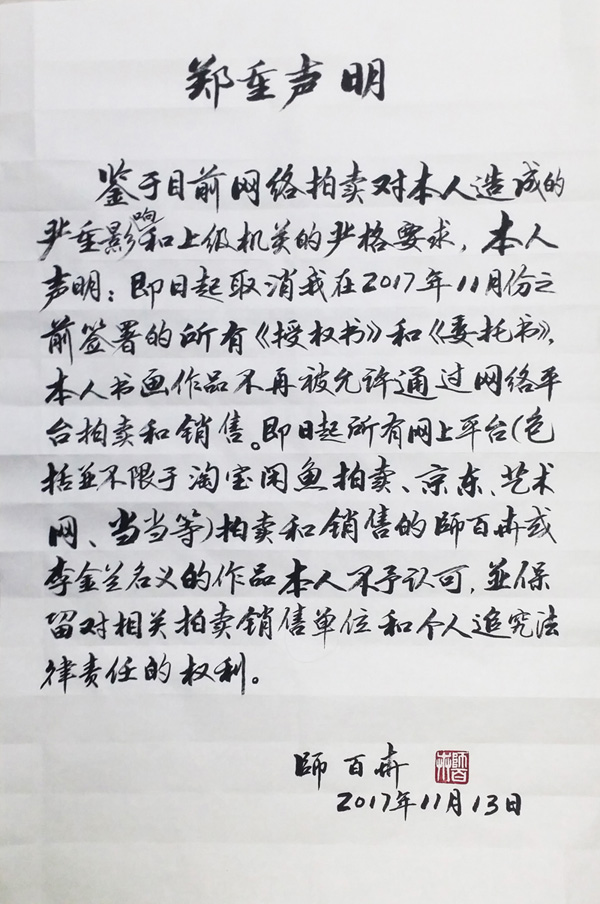 郑重声明
鉴于目前网络拍卖对本人造成的
严重影响和上级机关的严格要求，本人
声明：即日起取消我在2017年11月份之
前签署的所有《授权书》和《委托书》，
本人书画作品不再被允许通过网络平
台拍卖和销售。即日起所有网上平台（包
括並不限于淘宝闲鱼拍卖、京东、艺术
网、当当等）拍卖和销售的師百卉或
李金兰名义的作品本人不予认可，並保
留对相关拍卖销售单位和个人追究法
律责任的权利。
師百卉
2017年11月13日